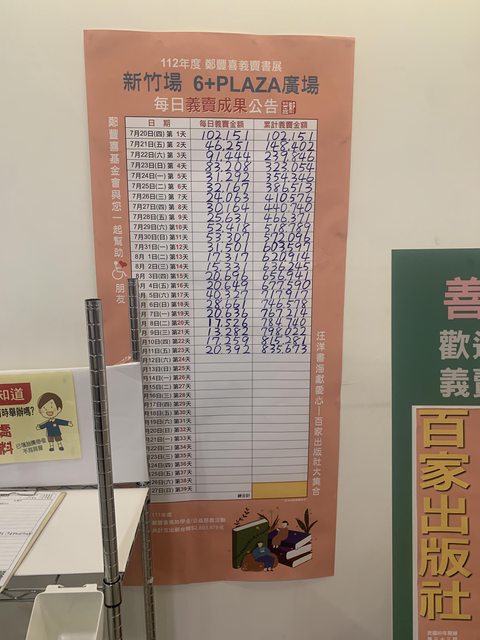 112年度 鄭豐喜義賣書展
新竹場 6+PLAZA廣場
每日義賣成果公告
日 期 每日義賣金額 累計義賣金額
7月20日(四) 第 1天 102,151 102,151
7月21日(五) 第 2天 46,251 148,402
7月22日(六) 第 3天 91,444 239,846
7月23日(日) 第 4天 83,208 323,054
7月24日(一) 第 5天 31,292 354,346
7月25日(二) 第 6天 32,167 386,513
7月26日(三) 第 7天 24,063 410,576
7月27日(四) 第 8天 30,164 440,740
7月28日(五) 第 9天 25,631 466,371
7月29日(六) 第10天 52,418 518,789
7月30日(日) 第11天 53,307 572,096
7月31日(一) 第12天 31,501 603,597
8月 1日(二) 第13天 17,317 620,914
8月 2日(三) 第14天 15,331 636,245
8月 3日(四) 第15天 20,696 656,941
月 4日(五) 第16天 20,649 677,590
月 5日(六) 第17天 40,327 717,917
月 6日(日) 第18天 28,661 746,578
月 7日(一) 第19天 20,636 767,214
月 8日(二) 第20天 17,526 784,740
月 9日(三) 第21天 13,282 798,022
月10日(四) 第22天 17,259 815,281
月11日(五) 第23天 20,392 835,673
月12日(六) 第24天
13日(日) 第25天
月14日(一) 第26天
月15日(二) 第27天
月16日(三) 第28天
月17日(四) 第29天
月18日(五) 第30天
月19日(六) 第31天
月20日(日) 第32天
月21日(一) 第33天
月22日(二) 第34天
月23日(三) 第35天
月24日(四) 第36天
月25日(五) 第37天
月26日(六) 第38天
月27日(日) 第39天
總合計
鄭豐喜基金會與您一起幫助
朋友
汪洋書海獻愛心—百家出版社大集合
111年度
知道
時舉辦嗎?
處
料
善
歡迎
義賣
百家出版社